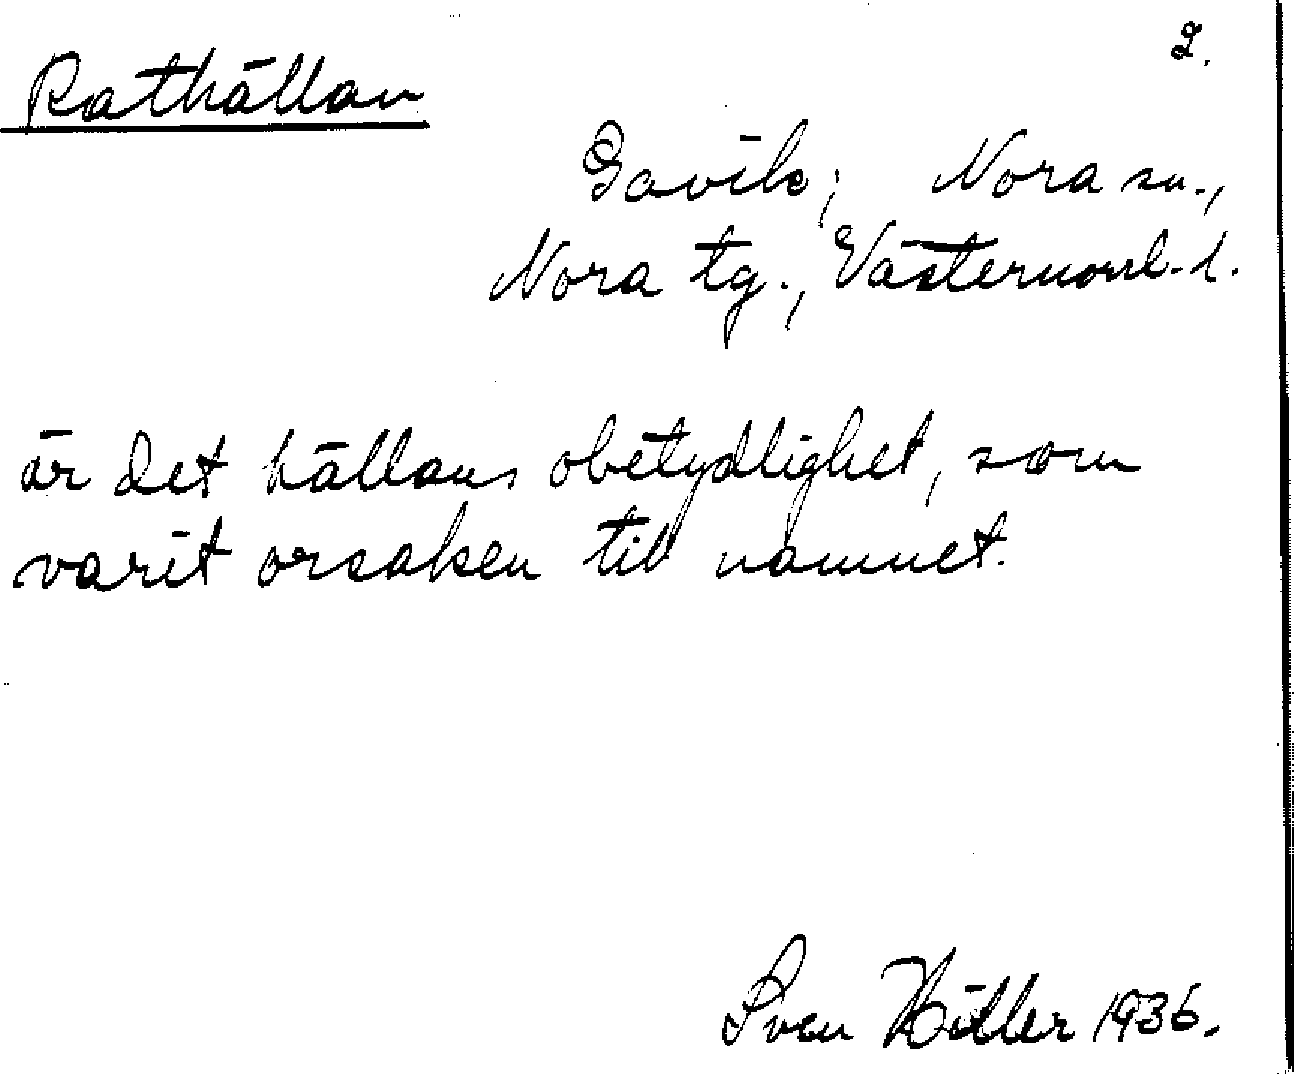 2.
Rathällan
Gavik; Nora sn.,
Nora tg., Västernorrl. l.
är det hällans obetydlighet, som
varit orsaken till namnet.
Sven Hitler 1936.